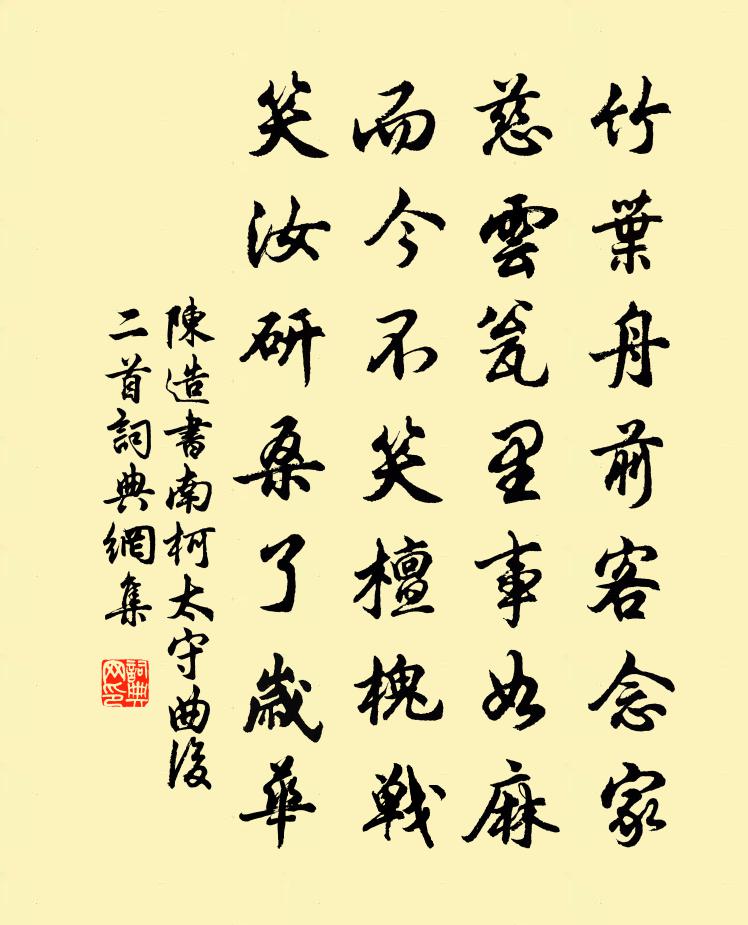 竹葉舟前客念家
慈雲瓮里事如麻
而今不笑檀槐戰
笑汝研桑了歲華
陳造書南柯太守曲後
二首詞典網集
詞典网印